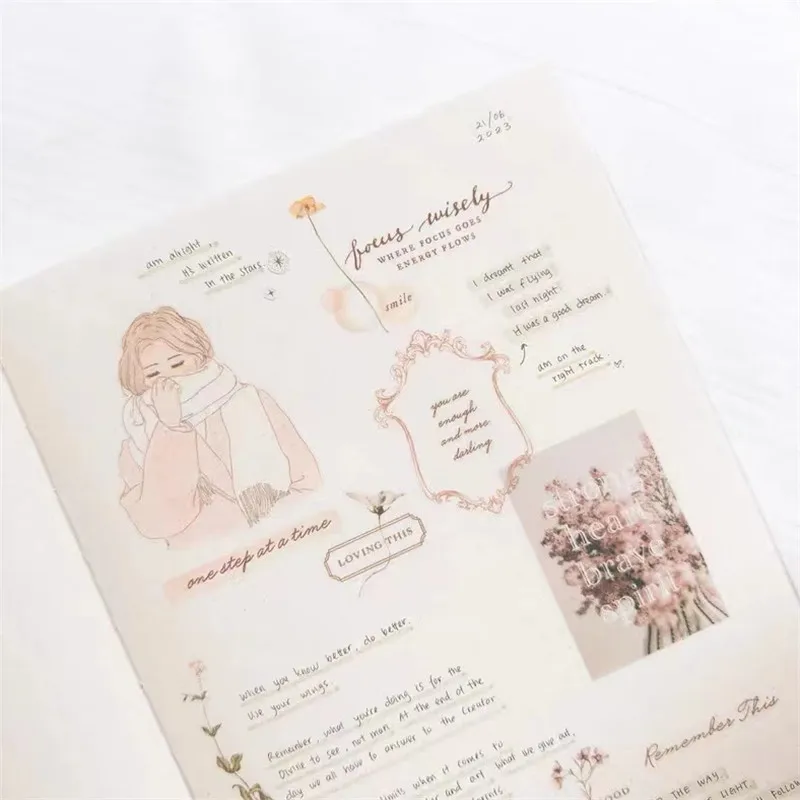 21/06
2023
focus wisely
WHERE FOCUS GOES
ENERGY FLOWS
am alright.
it's written
in the stars
smile
I dreamt that
I was flying
last night.
It was a good dream.
am on the
right track.
you are
enough
and more
darling
strong
heart
brave
spirit
one step at a time
LOVING THIS
when you know better, do better.
Use your wings.
Remember, what you're doing is for the
Divine to see, not man. At the end of the
day we all have to answer to the Creator
limits when it comes to
and art. what we give out,
Remember This
GOOD
THE WAY
LIGHT
Follow